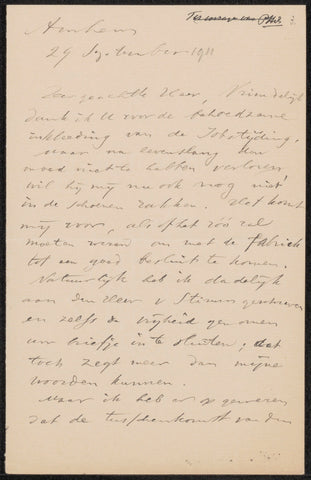 Ter inzage van Phil. 3.
Arnhem
29 September 1911
Zeer geachte Heer, Vriendelijk
dank ik U voor de behoedzame
inkleeding van de Jobstijding,
maar na levenslang den
moed niet te hebben verloren
wil hij mij nu ook nog niet
in de schoenen zakken. Het komt
mij voor, alsof het zóó zal
moeten wezen om met de fabriek
tot een goed besluit te komen.
Natuurlijk heb ik dadelijk
aan den Heer v Stimm geschreven
en zelfs de vrijheid genomen
uw briefje in te sluiten; dat
toch zegt meer dan mijne
woorden kunnen.
Maar ik heb er op gewezen
dat de tusschenkomst van den